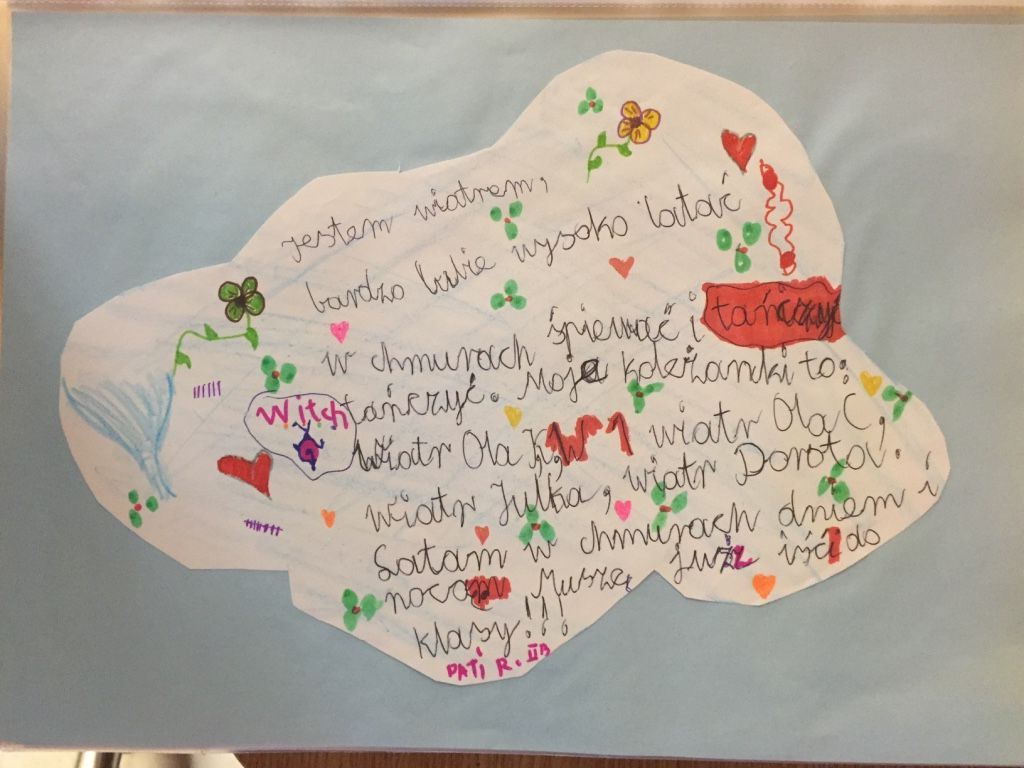 jestem wiatrem,
bardzo lubie wysoko latać
w chmurach śpiewać i tańczyć
tańczyć. Moje koleżanki to:
Witch
wiatr Ola K, wiatr Ola C,
wiatr Julka, wiatr Dorota.
Latam w chmurach dniem i
nocą Muszę już iść do
klasy!!!
PATi R. IIB